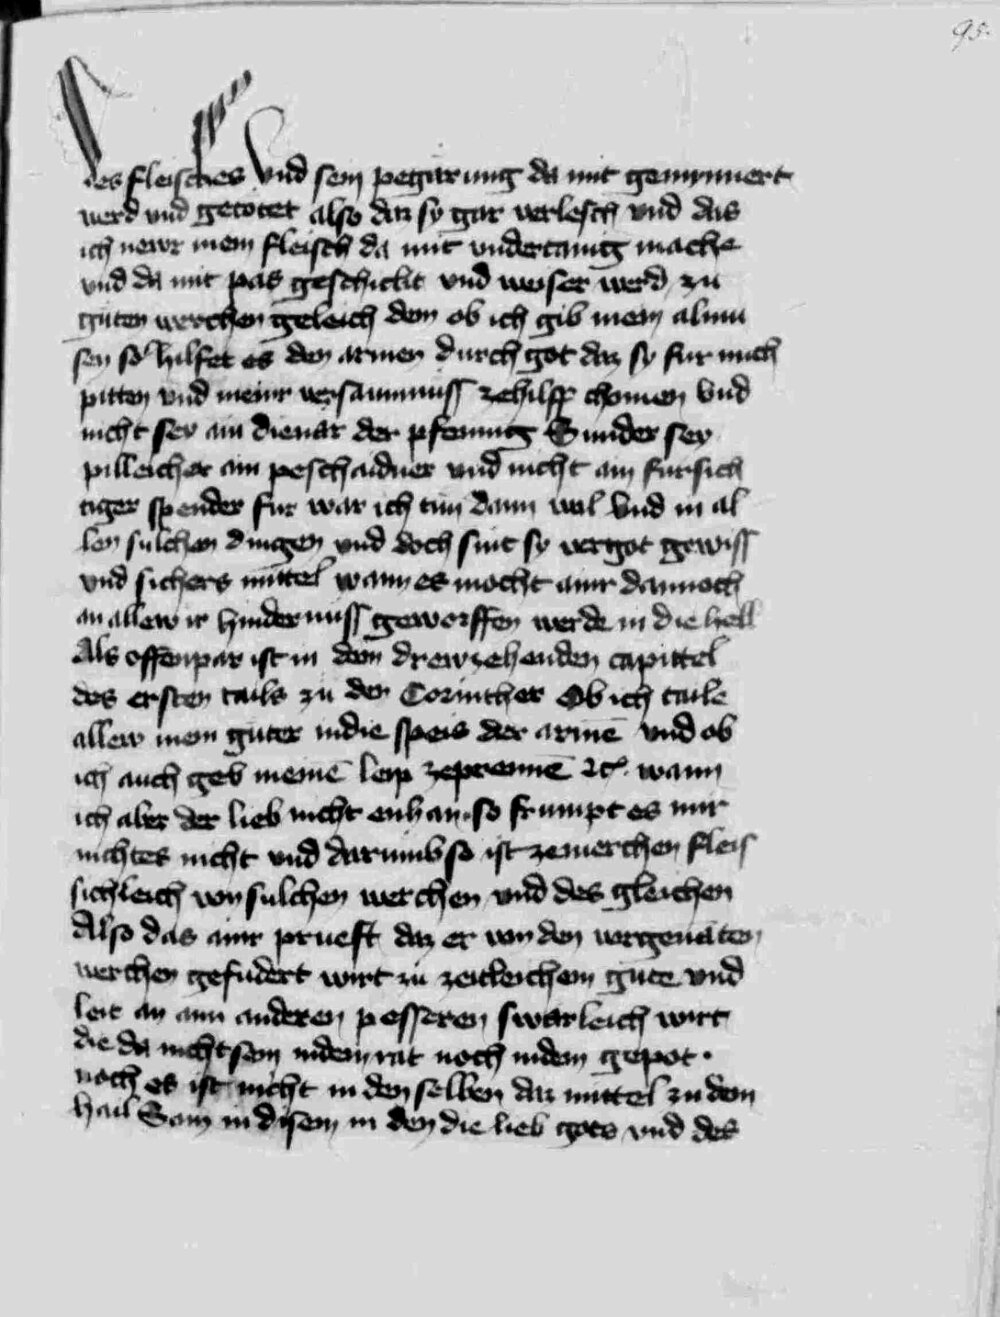 95.
des fleisches Vnd sein pegirung da mit gemynnert
werd vnd getötet also daz sy gar verlesch vnd das
ich newr mein fleisch da mit vndertanig mache
vnd da mit pas geschickt vnd weiser werd zu
guten werchen geleich dem ob ich gib mein almu
sen so hilfet es den armen durch got daz sy fur mich
pitten vnd meiner versaumnuss zehilff chomen Vnd
nicht sey ain dienar der pfenning Sunder sey
pilleicher ain peschaidner vnd nicht ain fursich
tiger spender fur war ich tun dann wol Vnd in al
len sulchen dingen vnd doch sint sy vergot gewiss
vnd sichers mittel wann es mocht ainr dannoch
an allew ir hindernuss geworffen werde in die hell
Als offenpar ist in dem drewzehenden capittel
des ersten tails zu den Corinther Ob ich taile
allew mein guter in die speis der armē vnd ob
ich auch geb meinē leip zeprennē ꝛc. wann
ich aber der lieb nicht enhan so frumpt es mir
nichtes nicht vnd darumb so ist zemerchen fleis
sichleich von sulchen werchen vnd des gleichen
Also das ainr prueft daz er von den vorgenāten
werchen gefudert wirt zu zeitleichem gute vnd
leit an ain anderen pesseren swarleich wirt
die da nicht sein in dem rat noch in dem gepot.
noch es ist nicht in den selben daz mittel zu dem
hail Sam in disem in den die lieb gots vnd des